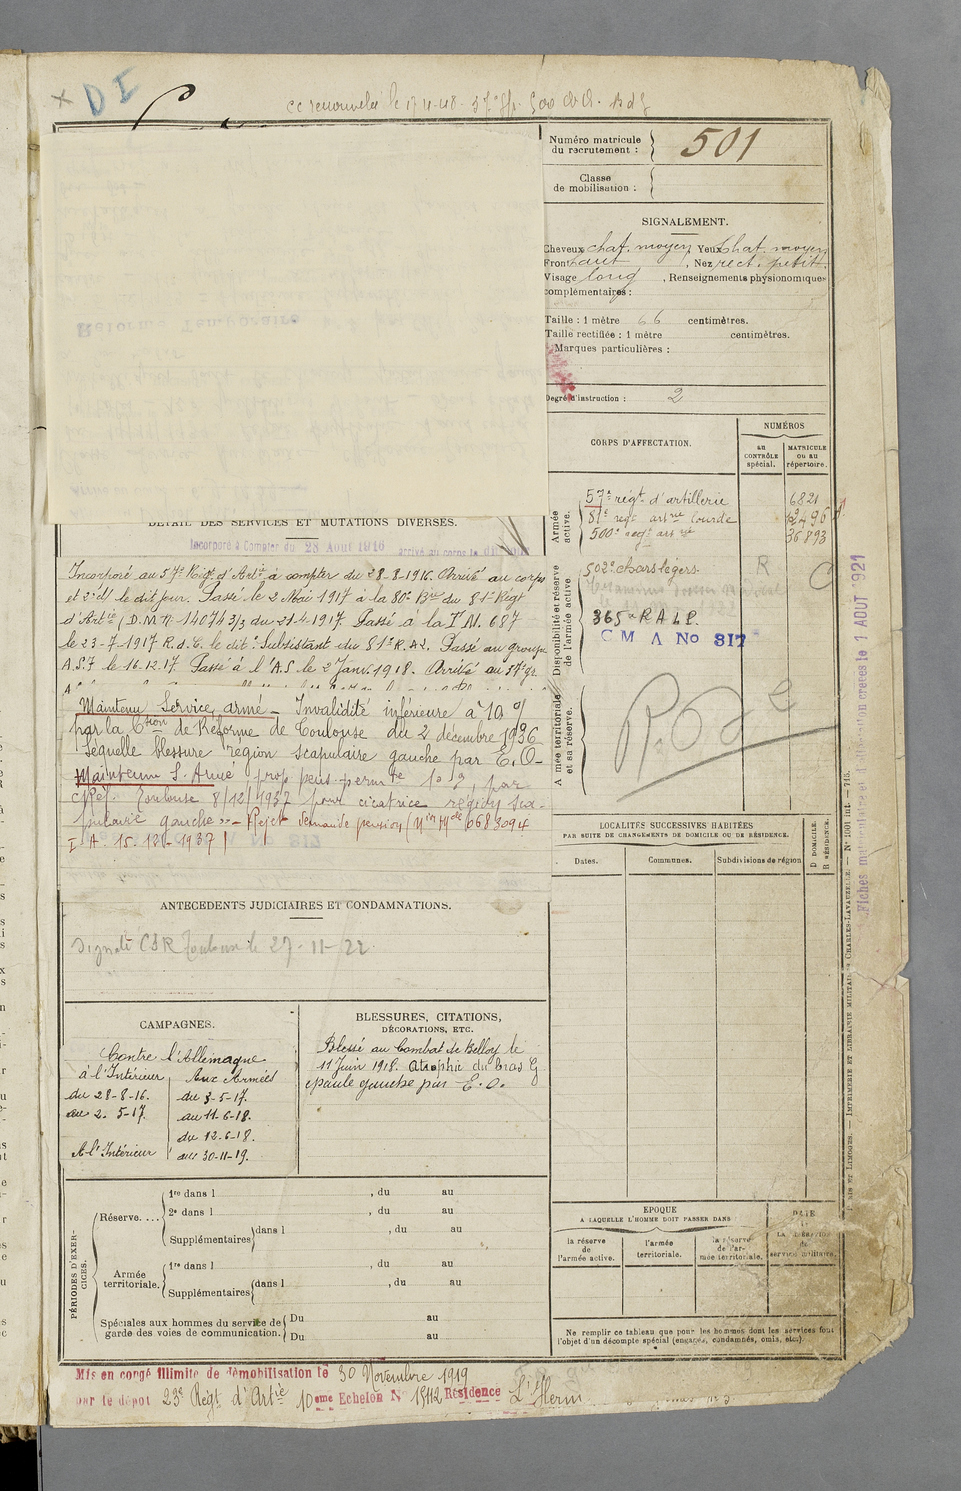 D I
cc renouvelée le 17-11-48
Numéro matricule
du recrutement :
501
Classe
de mobilisation :
SIGNALEMENT.
Cheveux chat. moyen, Yeux chat. moyen
Front haut, Nez rect. petit.
Visage long, Renseignements physionomiques
complémentaires :
Taille : 1 mètre 66 centimètres.
Taille rectifiée : 1 mètre centimètres.
Marques particulières :
Degré d'instruction : 2
CORPS D'AFFECTATION.
NUMÉROS
au
CONTRÔLE
spécial.
MATRICULE
OU AU
répertoire.
Armée
active.
57e régt d'artillerie 6821
81e régt artrie lourde
500e régt artie 36893
Disponibilité et réserve
de l'armée active
502e chars légers R
365e R A L P.
C M A No 317
Armée territoriale
et sa réserve.
DÉTAIL DES SERVICES ET MUTATIONS DIVERSES.
Incorporé à Compter du 28 Août 1916 arrivé au corps le dit jour
Incorporé au 57e Régt d'Artie à compter du 28-8-1916. Arrivé au corps
et 2e cl le dit jour. Passé le 2 Mai 1917 à la 80e Bie du 81e Régt
d'Artie (D.M. No 14074 3/3 du 21-4-1917. Passé à la I'A. 687
le 23-7-1917 R.d.C. le dit. Subsistant du 81e R.A.L. Passé au groupe
A.S.7 le 16-12-17. Passé à l'A.S. le 2 Janv. 1918. Arrivé au 37e gr
Maintenu Service armé – Invalidité inférieure à 10 %
par la Ction de Réforme de Toulouse du 2 décembre 1936
Séquelle blessure région scapulaire gauche par E.O-
Maintenu S. Armé prop pens. permte 10 %, par
C. Réf. Toulouse 8/12/1937 pour cicatrice région sca-
pulaire gauche » – Rejet demande pension (Min No de 0683094
I A. 15. 12. 1937)
LOCALITÉS SUCCESSIVES HABITÉES
PAR SUITE DE CHANGEMENTS DE DOMICILE OU DE RÉSIDENCE.
Dates.
Communes.
Subdivisions de région
D DOMICILE.
R RÉSIDENCE.
ANTÉCÉDENTS JUDICIAIRES ET CONDAMNATIONS.
Signalé CSR Toulouse le 27-11-22
CAMPAGNES.
Contre l'Allemagne
à l'Intérieur Aux Armées
du 28-8-16. du 3-5-17.
au 2. 5-17. au 11-6-18.
du 12-6-18.
A l'Intérieur au 30-11-19.
BLESSURES, CITATIONS,
DÉCORATIONS, ETC.
Blessé au Combat de Belloy le
11 Juin 1918. Atrophie du bras G
épaule gauche par E. O.
PÉRIODES D'EXER-
CICES.
Réserve. ...
1re dans l , du au
2e dans l , du au
Supplémentaires dans l , du au
Armée
territoriale.
1re dans l , du au
Supplémentaires dans l , du au
Spéciales aux hommes du service de
garde des voies de communication.
Du au
Du au
ÉPOQUE
A LAQUELLE L'HOMME DOIT PASSER DANS
la réserve
de
l'armée active.
l'armée
territoriale.
la réserve
de l'ar-
mée territoriale.
DATE
DE
LA LIBÉRATION
du
service militaire.
Ne remplir ce tableau que pour les hommes dont les services font
l'objet d'un décompte spécial (engagés, condamnés, omis, etc.).
Mis en congé illimité de démobilisation le 30 Novembre 1919
par le dépôt 23e Régt d'Artie 10eme Echelon No 15112 Résidence L'Herm
PARIS ET LIMOGES. — IMPRIMERIE ET LIBRAIRIE MILITAIRES CHARLES-LAVAUZELLE. — No 1001 int. — 715.
Fiches matriculaire et d'affectation créées le 1 AOUT 1921